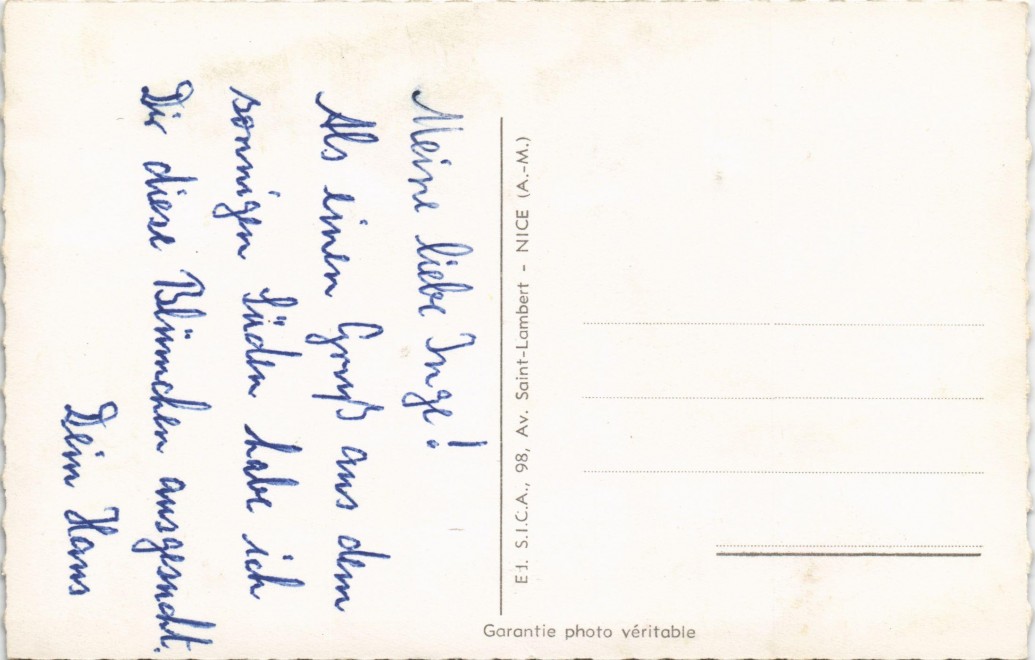 Meine liebe Inge!
Als einen Gruß aus dem
sonnigen Süden habe ich
Dir diese Blümchen ausgesucht.
Dein Hans
Ed. S.I.C.A., 98, Av. Saint-Lambert - NICE (A.-M.)
Garantie photo véritable